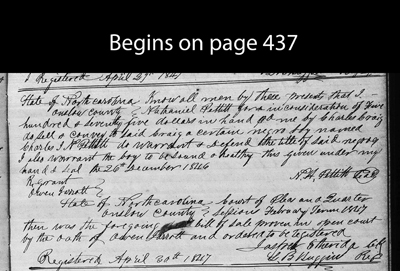 Begins on page 437
Registered April 29th 1847
State of North Carolina Know all men by these present that I
Onslow County } Nathaniel Pettitt for & in consideration of Five
hundred & seventy five dollars in hand to me by Charles Craig
do sell & convey to said Craig a certain negro boy named
Charles I N Pettitt do warrant & defend the title of said negro &
I also warrant the boy to be sound & healthy this given under my
hand & seal the 26th December 1846
N. Pettitt
Owen
State of North Carolina Court of Pleas and Quarter
Onslow County } Sessions February Term 1847
then was the foregoing bill of sale proven in open court
by the oath of Owen and ordered to be registered
Jasper Etheridge Clk
Registered April 30th 1847 Huggins Reg